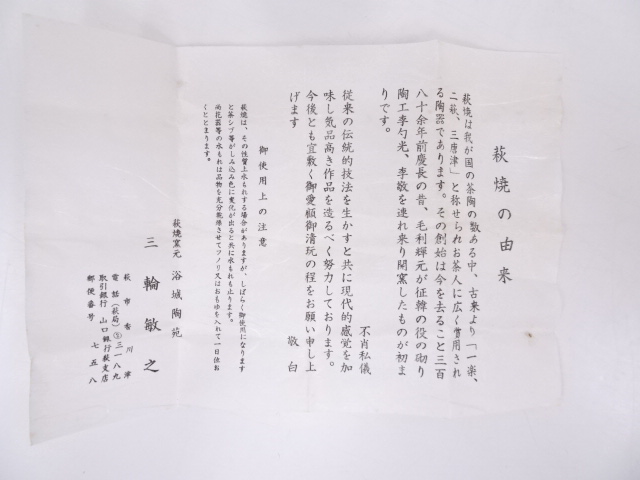 萩焼の由来
萩焼は我が国の茶陶の数ある中、古来より「一楽、
二萩、三唐津」と称せられお茶人に広く賞用され
る陶器であります。その創始は今を去ること三百
八十余年前慶長の昔、毛利輝元が征韓の役の砌り
陶工李勺光、李敬を連れ来り開窯したものが初ま
りです。
不肖私儀
従来の伝統的技法を生かすと共に現代的感覚を加
味し気品高き作品を造るべく努力しております。
今後とも宜敷く御愛顧御清玩の程をお願い申し上
げます
敬白
御使用上の注意
萩焼は、その性質上水もれする場合がありますが、しばらく御使用になります
と茶シブ等がしみ込み色に変化が出ると共に水もれも止ります。
尚花器等の水もれは品物を充分乾燥させてフノリ又はおもゆを入れて一日位お
くととまります。
萩焼窯元 浴城陶苑
三輪敏之
萩市香川津
電話(萩局)②三一八九
取引銀行 山口銀行萩支店
郵便番号 七五八